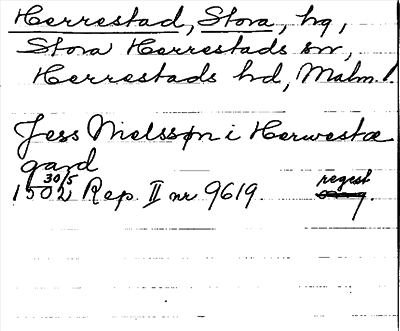 Herrestad, Stora, hg,
Stora Herrestads sn,
Herrestads hd, Malm. l.
Jess Nielssøn i Herwestæ
gard
1502 30/5 Rep. II nr 9619. regest